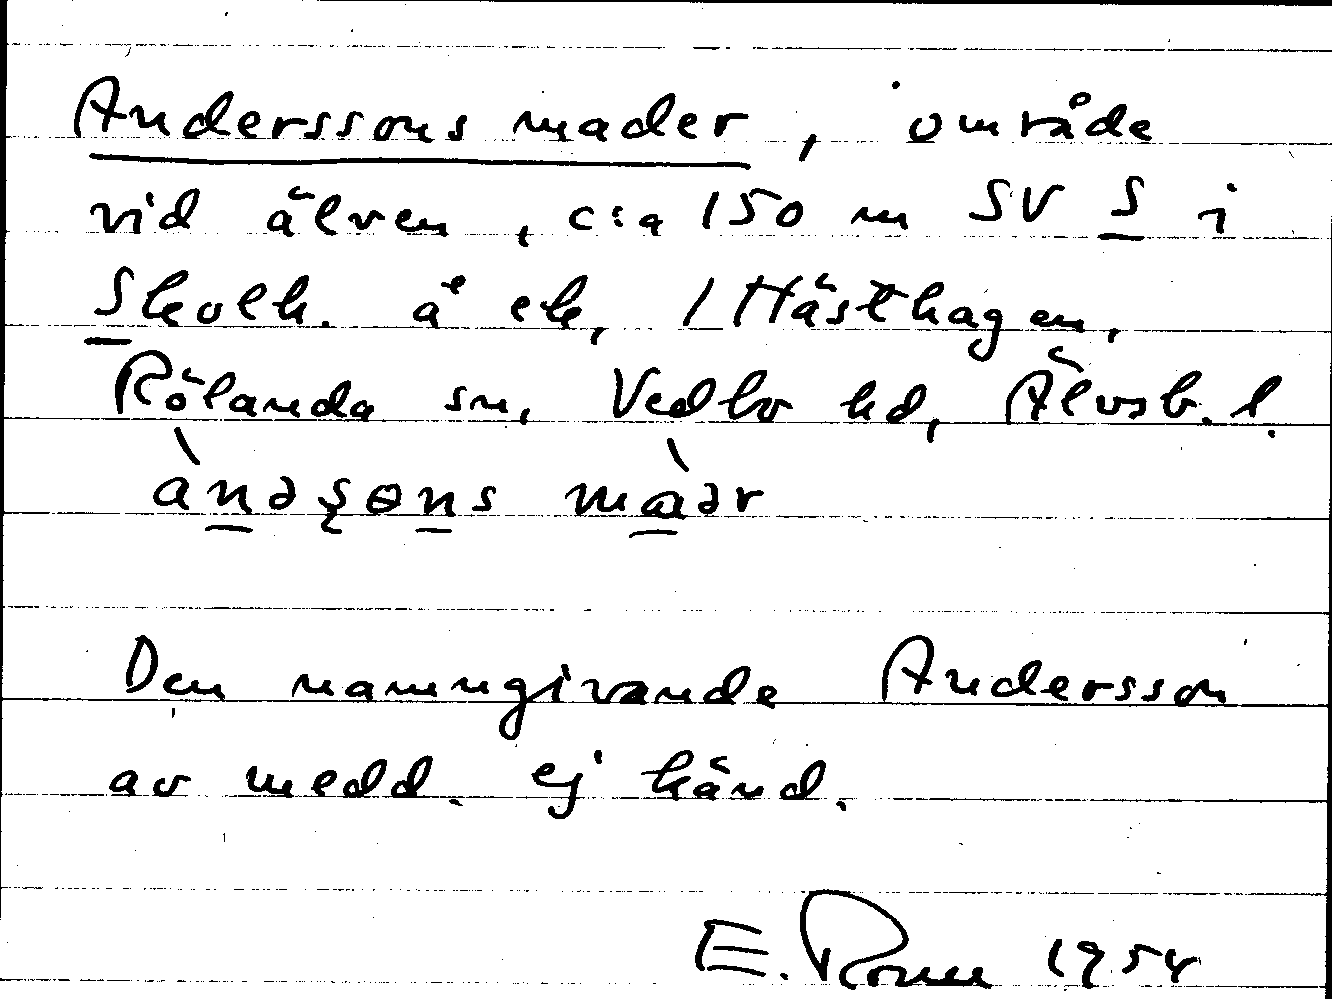 Anderssons mader, område
vid älven, c:a 150 m SV S i
Skolh. å ek, 1 Hästhagen,
Rölanda sn, Vedbo hd, Älvsb. l.
àndşɵns màdr
Den namngivande Andersson
av medd. ej känd.
E. 1954